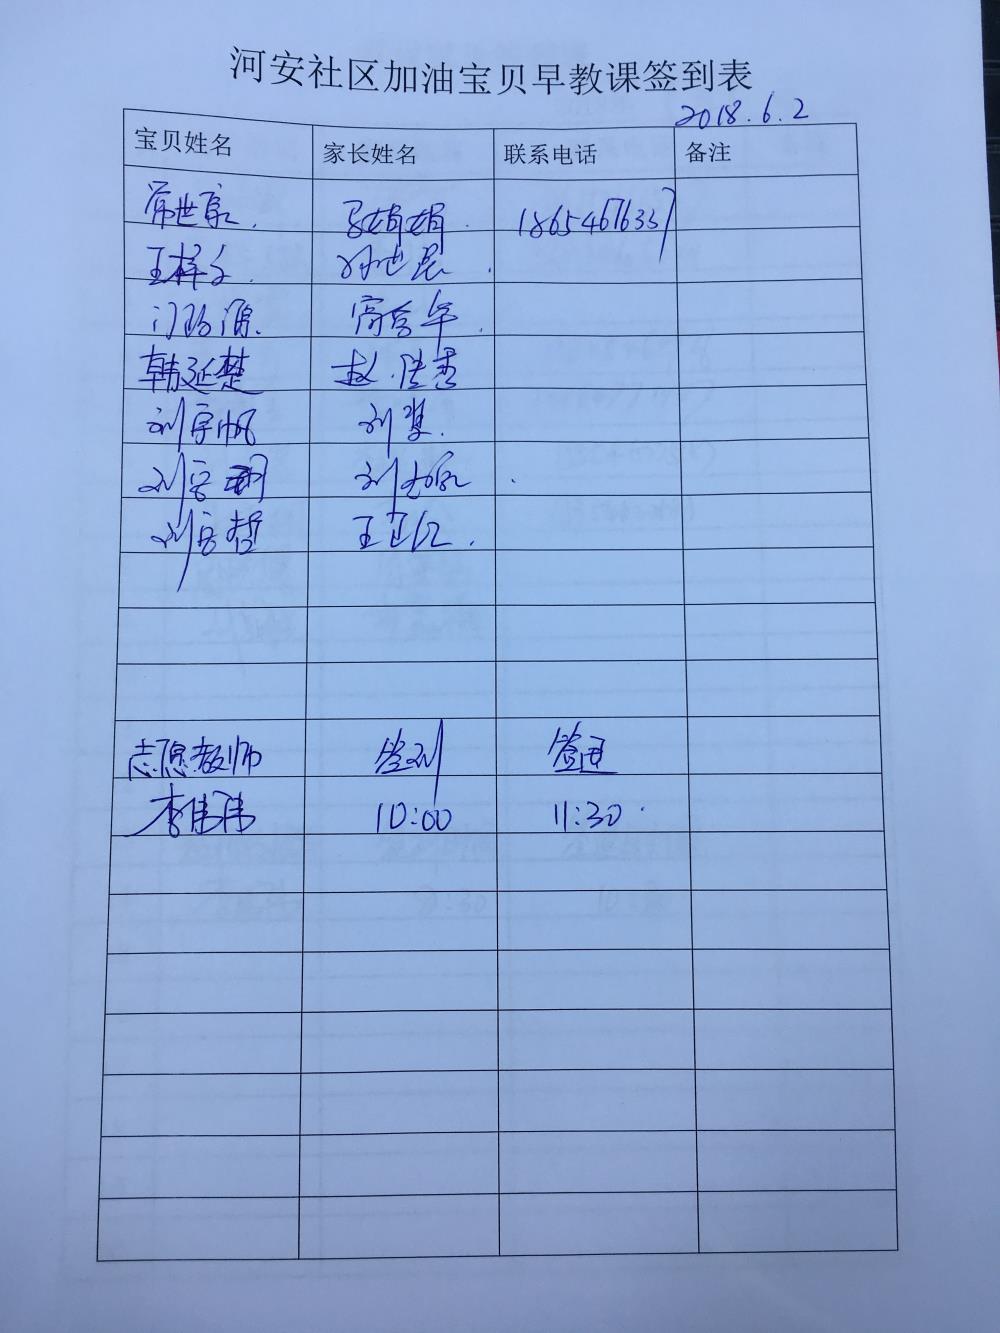 河安社区加油宝贝早教课签到表
2018.6.2
宝贝姓名 家长姓名 联系电话 备注
常世 娟娟. 18654676337
王梓 孙世
门 高
韩延楚 赵
刘宇帆 刘
刘 刘
刘哲 王
志愿教师 签到 签退
李伟伟 10:00 11:30.